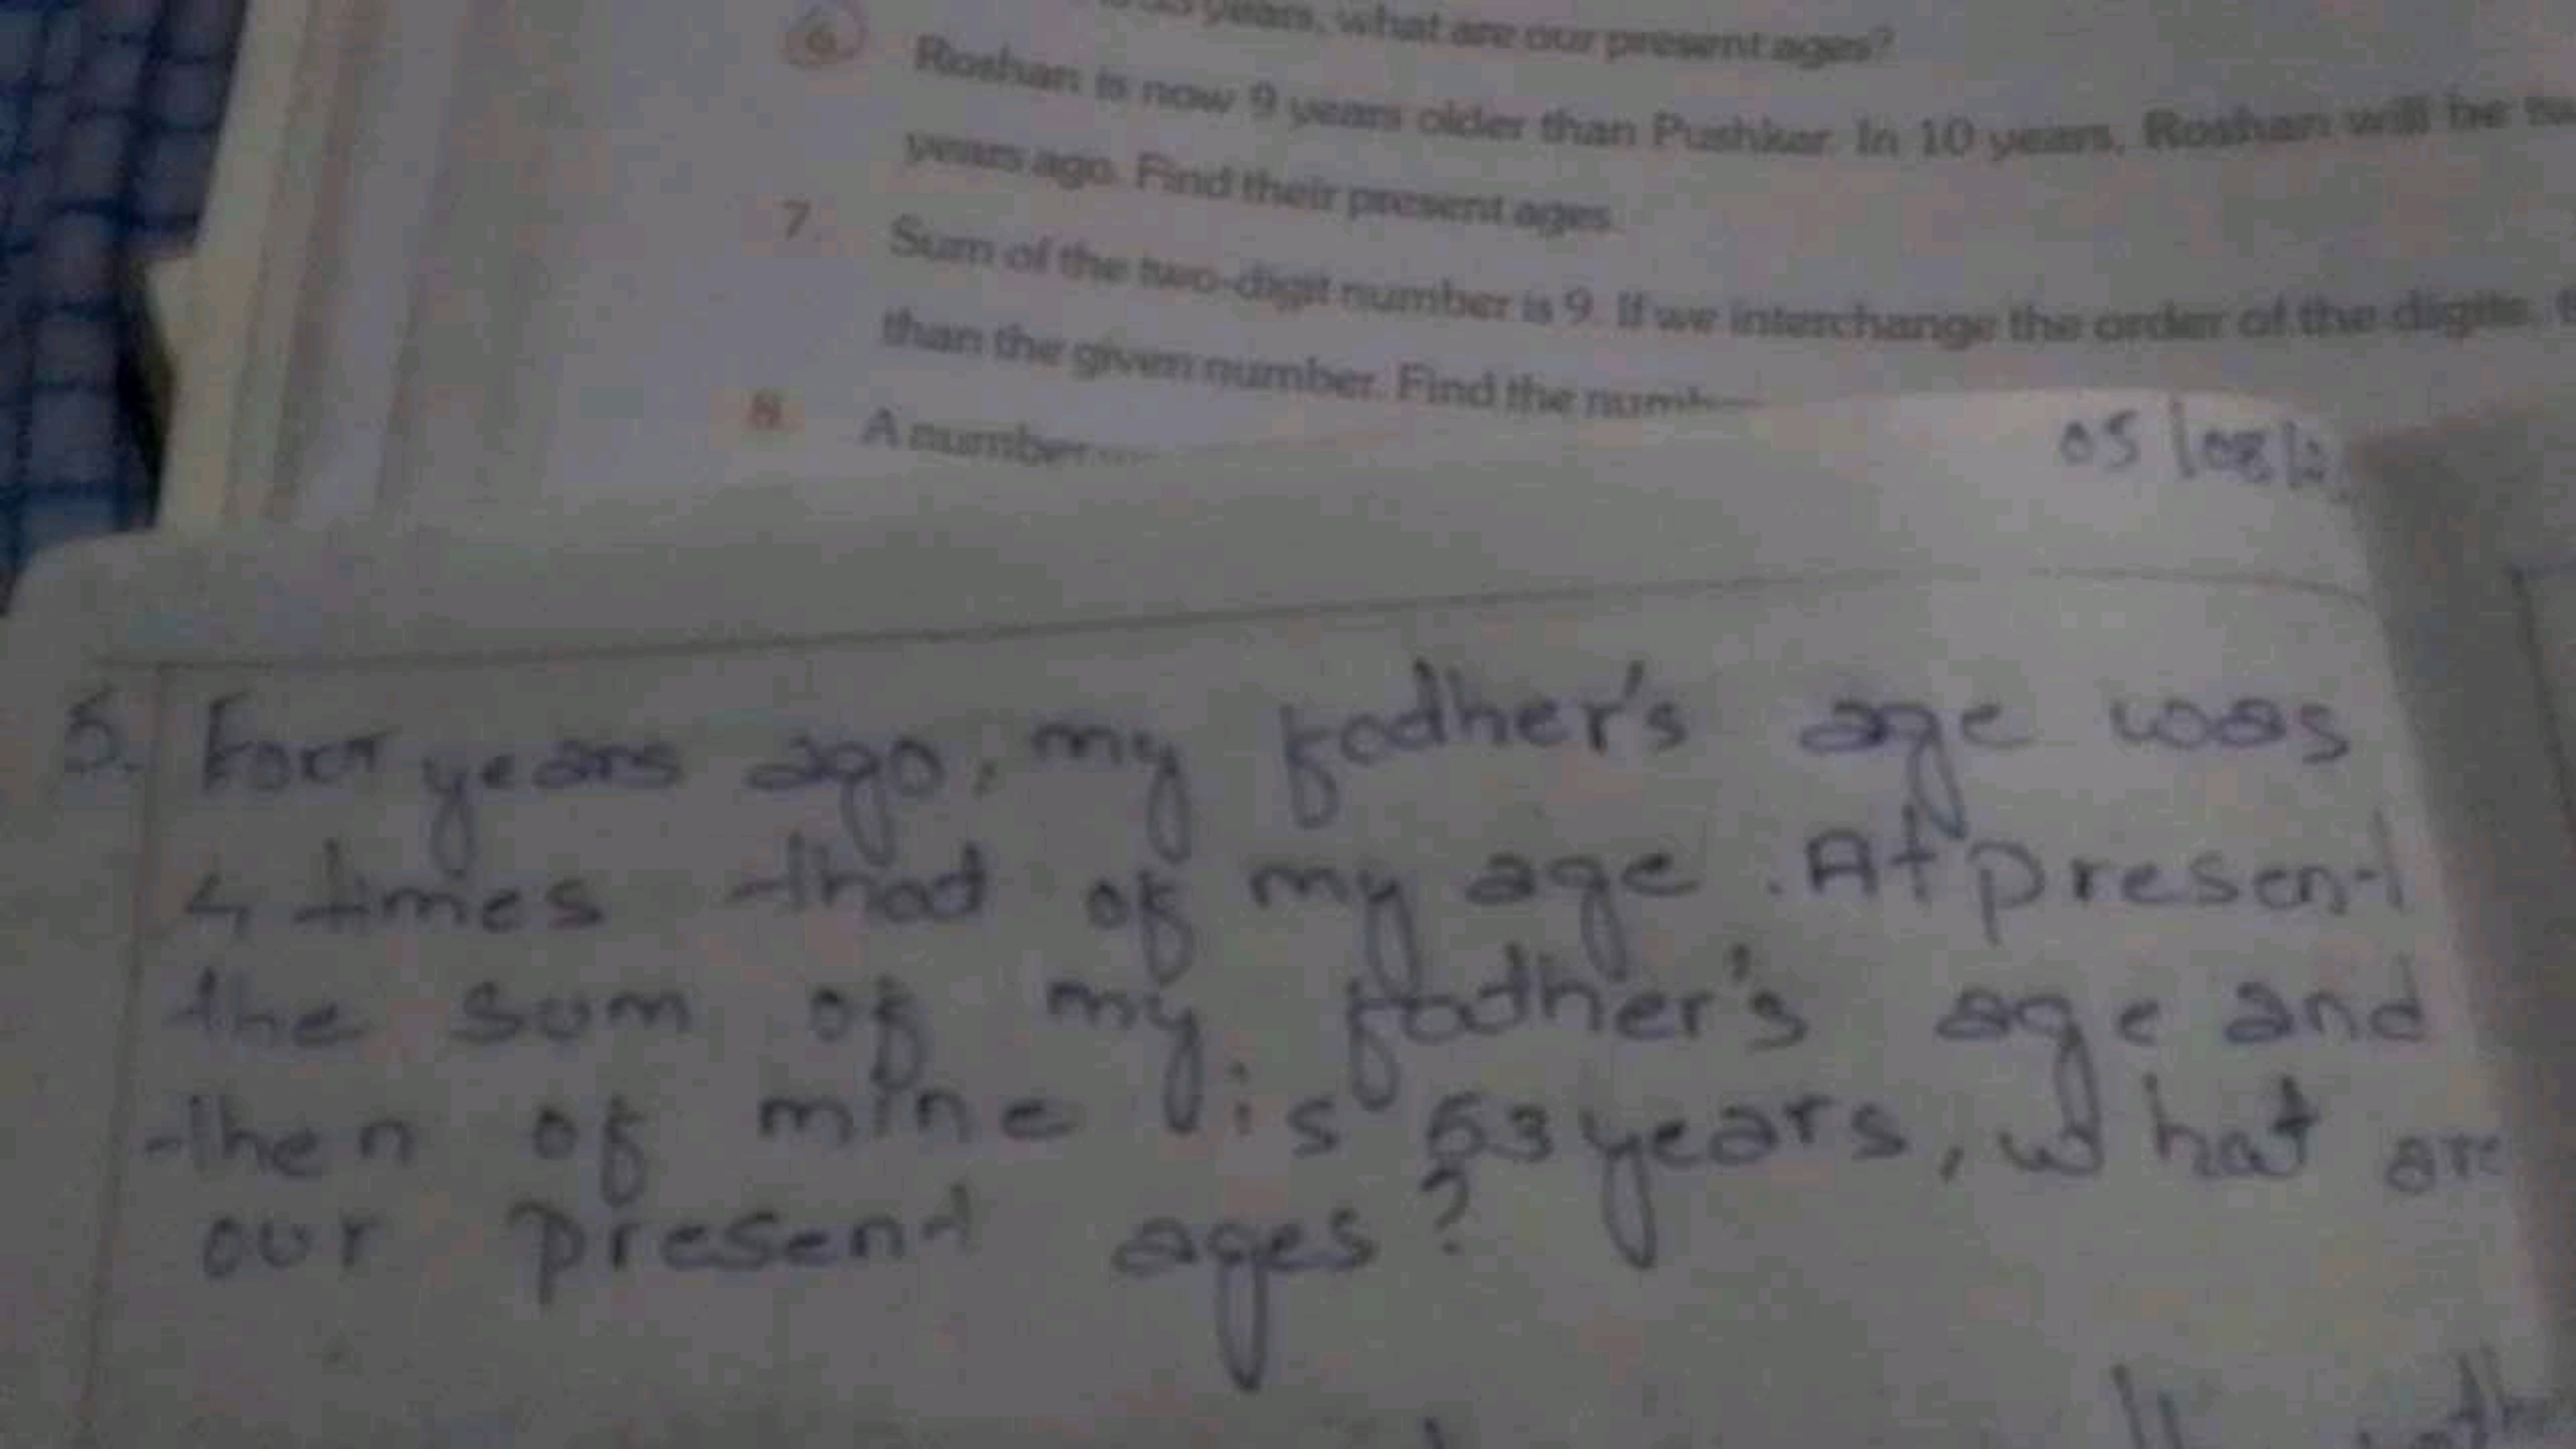 years, what are our present ages?
6. Roshan is now 9 years older than Pushkar. In 10 years, Roshan will be
years ago. Find their present ages.
7. Sum of the two-digit number is 9. If we interchange the order of the digits.
than the given number. Find the
8. A number
05/08/2
5. Four years ago, my fadher's age was
4 times that of my age. At present
the sum of my father's age and
then of mine is 53 years, what are
our present ages?